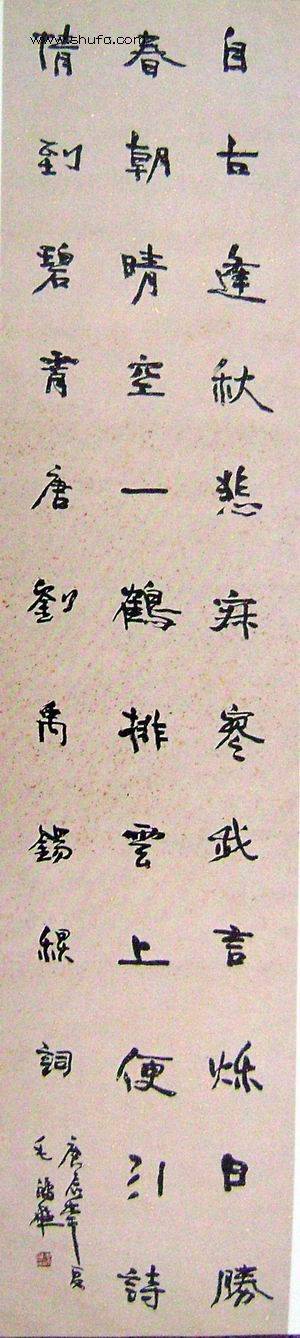 www.shufa.com
自古逢秋悲寂寥我言秋日勝
春朝晴空一鶴排雲上便引詩
情到碧霄唐劉禹錫詞
庚辰
毛